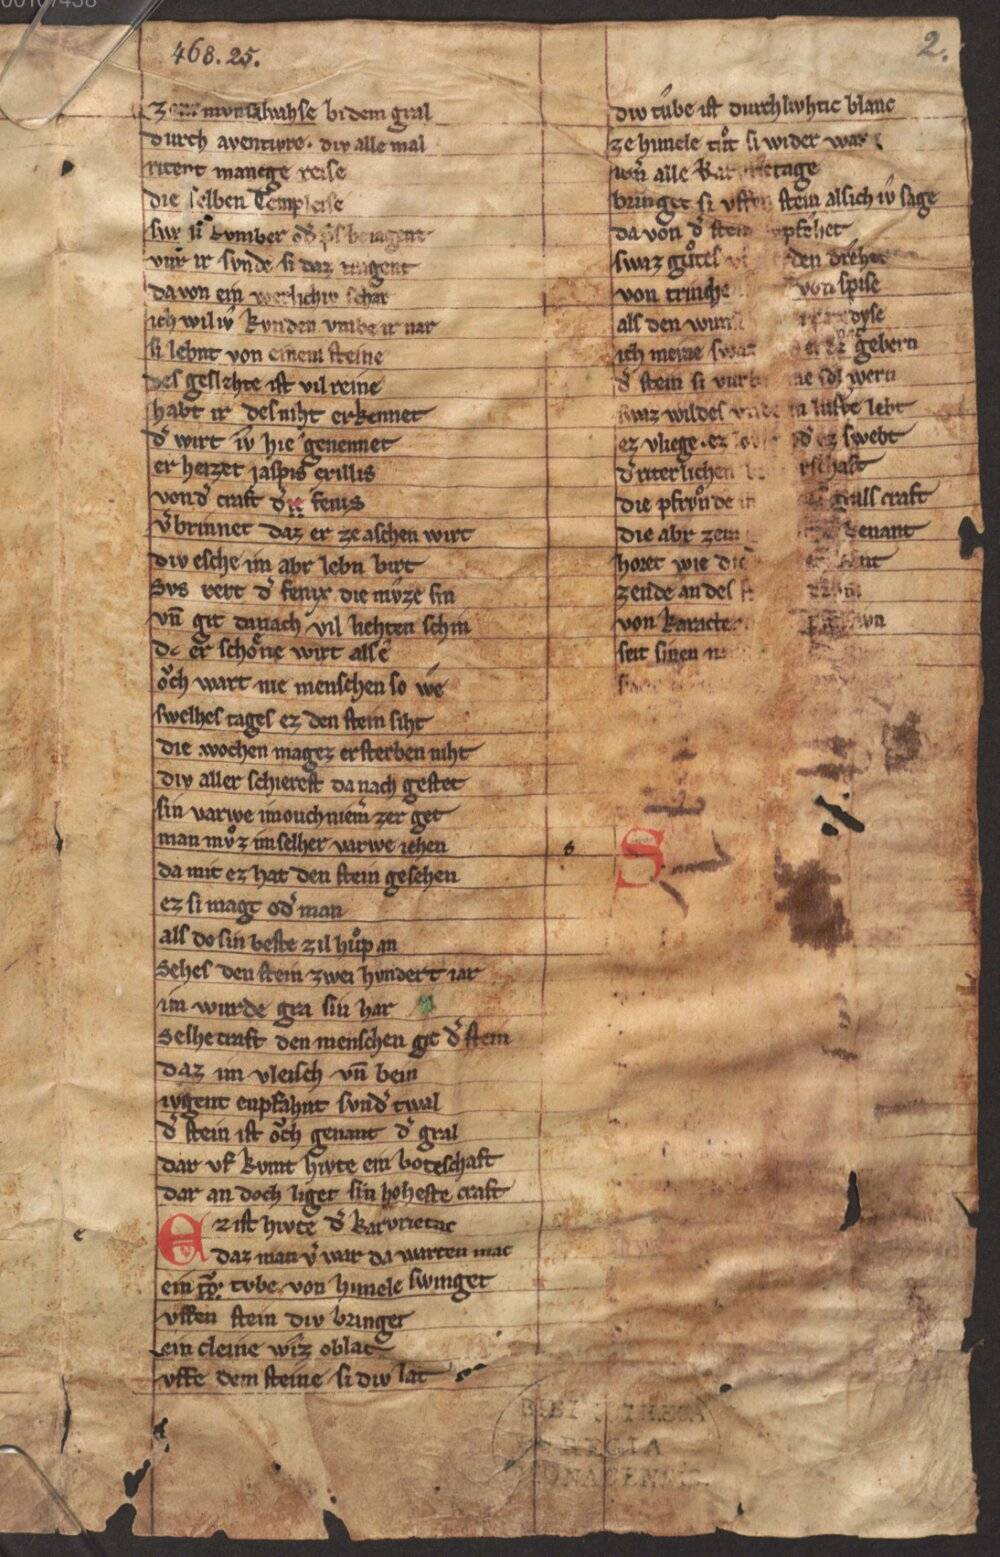 468.25.
2.
ze munsalwahse bi dem gral
durch aventiure. div alle mal
ritent manege reise
die selben Templeise
swr si kvmber od pris beiagent
vur ir svnde si daz tragent
da von ein werlichiv schar
ich wil iv kvnden vmbe ir nar
si lebnt von einem steine
des geslehte ist vil reine
habt ir des niht erkennet
d wirt iv hie genennet
er heizet jaspis erillis
von d craft d fenis
v̓brinnet daz er ze aschen wirt
div esche im abr lebn birt
Svs rert d̓ fenix die mvze sin
vn̄ git danach vil liehten schin
dc er schoͤne wirt als e
oͮch wart nie menschen so we
swelhes tages ez den stein siht
die wochen magez ersterben niht
div aller schierest da nach gestet
sin varwe im ouch niem̓ zer get
man mvͦz im selher varwe iehen
da mit ez hat den stein gesehen
ez si magt od̓ man
als do sin beste zil hvͦp an
Sehes den stein zwei hvndert iar
im wurde gra sin har
Selhe craft den menschen git d̓ stein
daz im vleisch vn̄ bein
ivgent enpfahnt svnd̓ twal
d̓ stein ist oͮch genant d̓ gral
dar vf kvmt hivte ein boteschaft
dar an doch liget sin hoheste craft
Ez ist hivte d̓ karvritac
daz man v̓ war da warten mac
ein tvbe von himele swinget
vffen stein div bringet
ein cleine wiz oblat
vffe dem steine si div lat
div tube ist durchlivhtic blanc
ze himele tuͦt si wider wanc
im̄ alle Karfritage
bringet si vffen stein als ich iv sage
da von d̓ stein enpfehet
swaz guͦtes vf den drehet
von trinche von spise
als den wunsch dyse
ich meine swaz gebern
d̓ stein si vurbaz me sol wern
swaz wildes vnde m lufte lebt
ez vliege. ez lovf od̓ ez swebt
d̓ riterlichen brvderschaft
die pfrvͦnde in grals craft
die abr zem benant
horet wie die erkant
zende an des steines
von Karacte
seit sinen namen
S
BIBLIOTHECA
REGIA
MONACENSIS